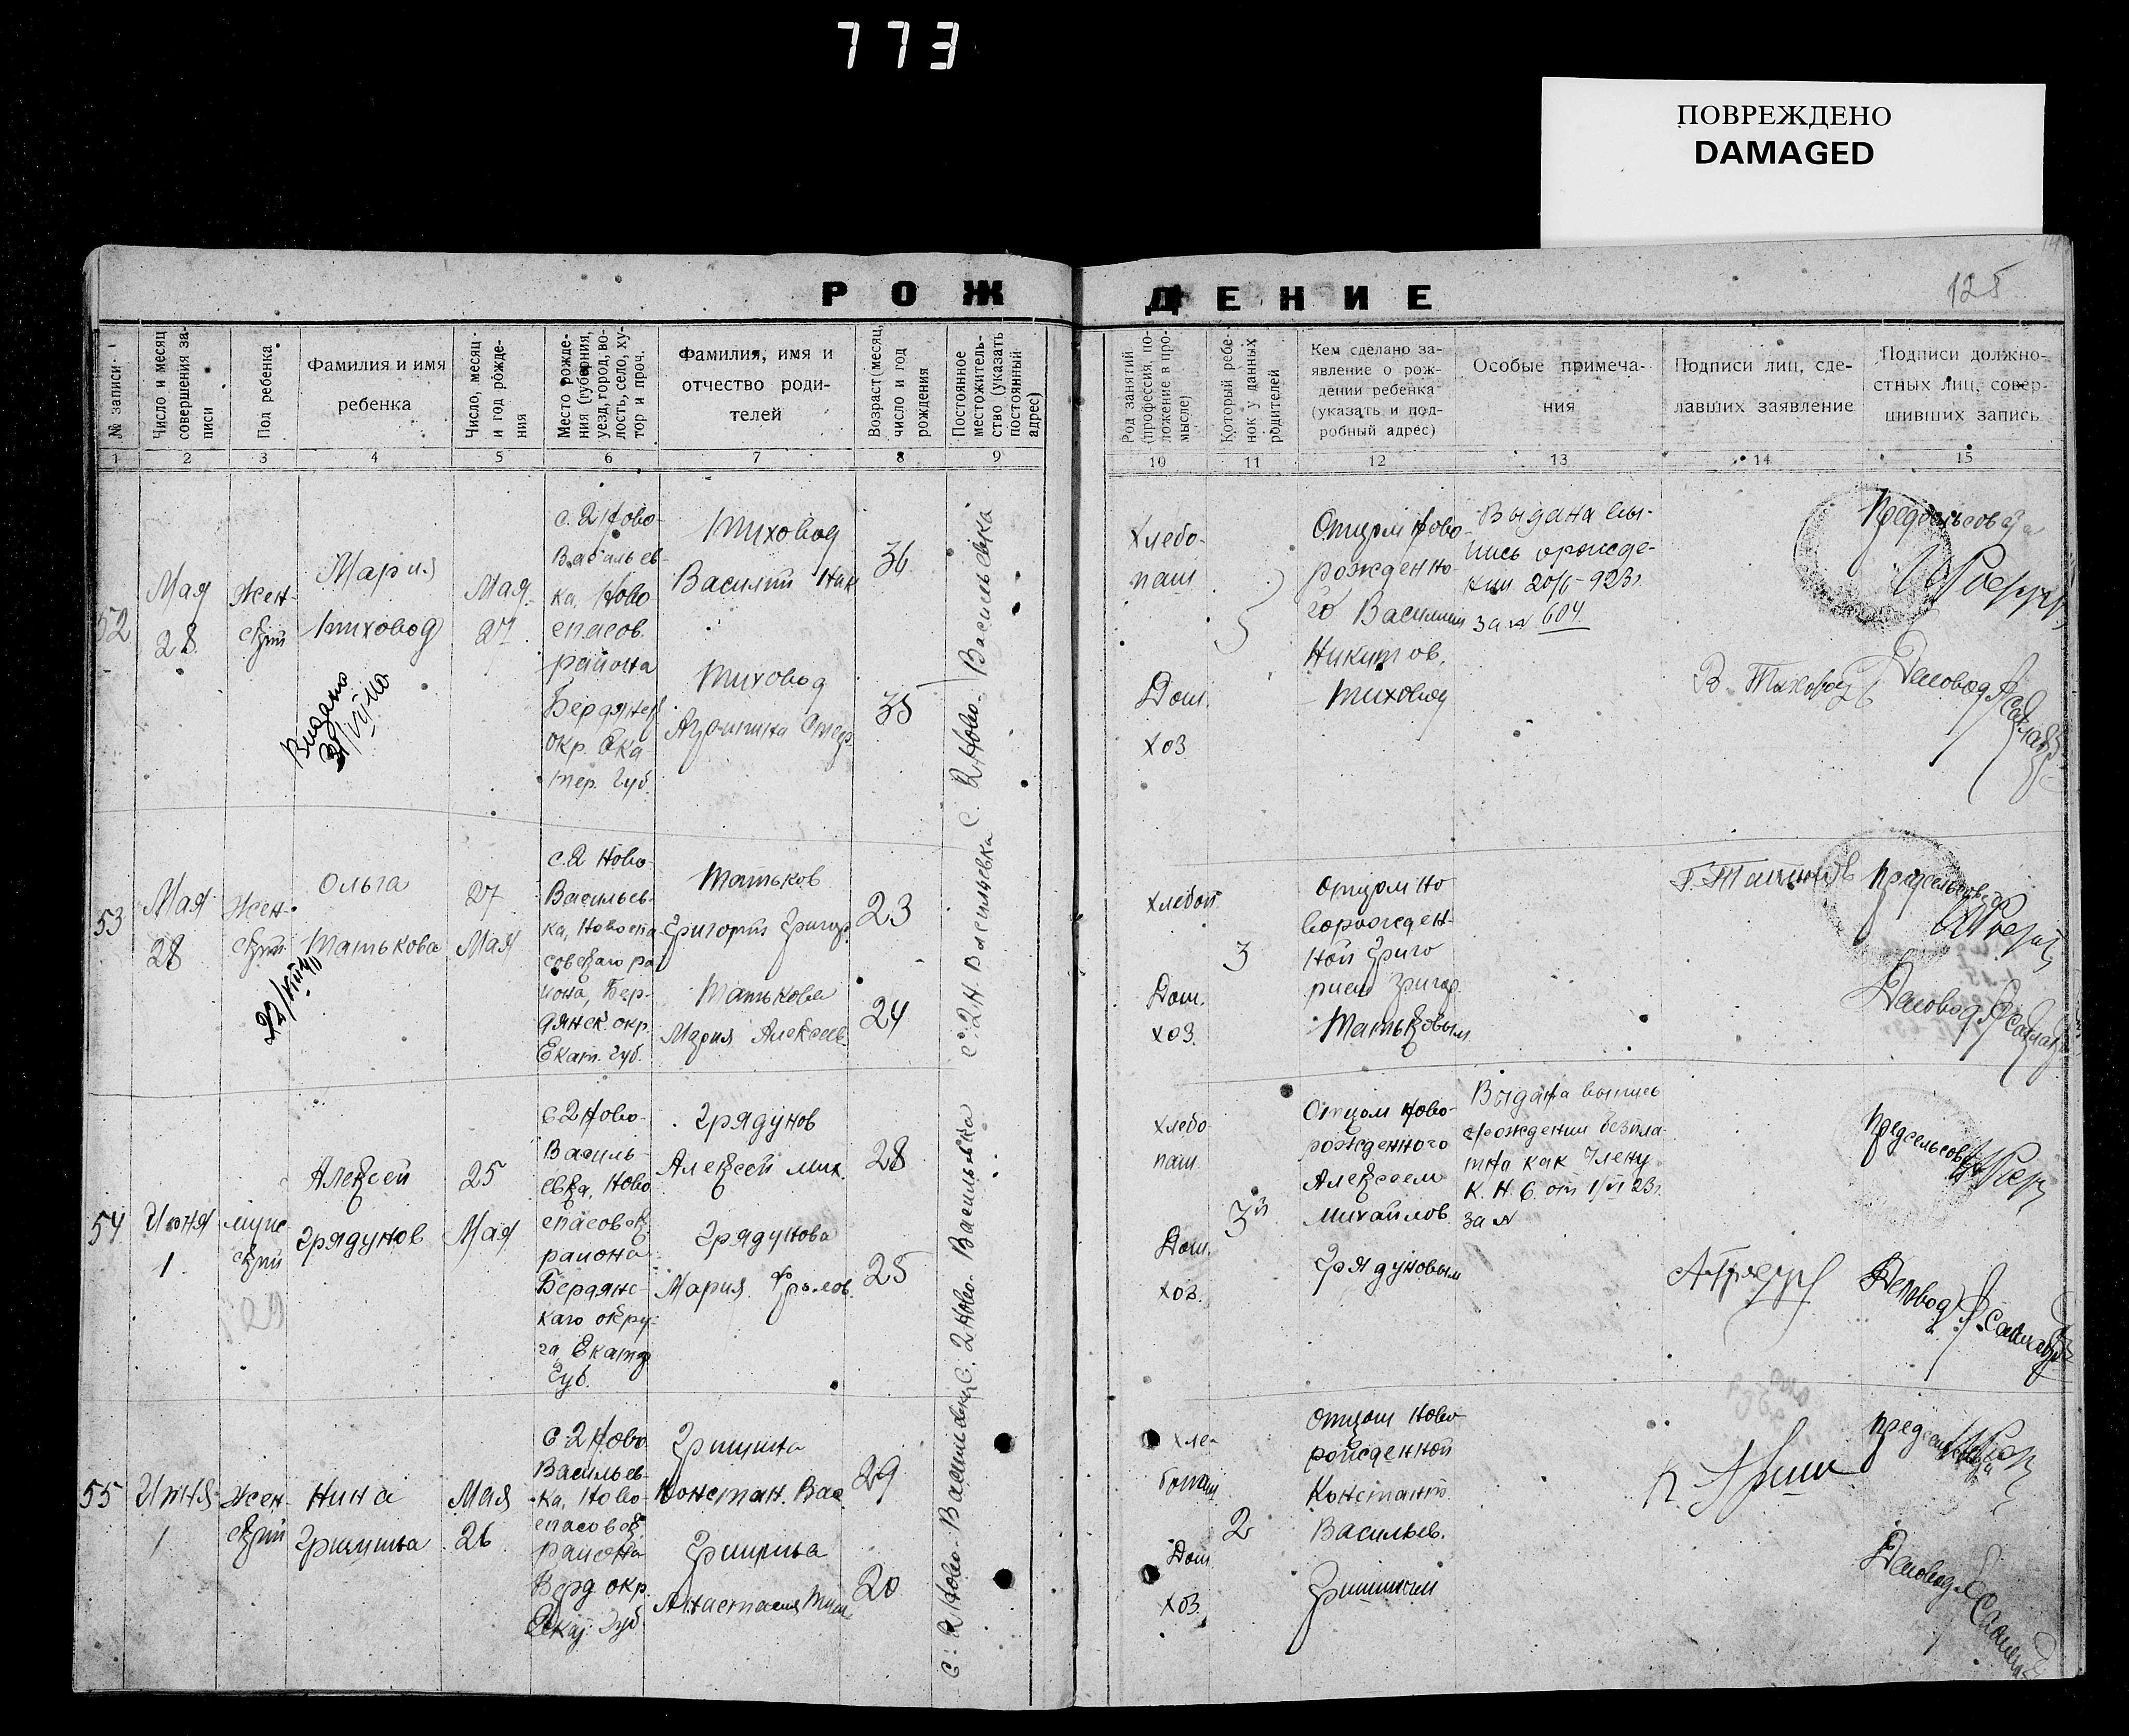 773
ПОВРЕЖДЕНО
DAMAGED
РОЖ
ДЕНИЕ
125
№ записи
Число и месяц совершения записи
Пол ребенка
Фамилия и имя
ребенка
Число, месяц и год рождения
Место рождения (губерния, уезд, город, волость, село, хутор и проч.
Фамилия, имя и
отчество роди-
телей
Возраст (месяц, число и год рождения
Постоянное местожительство (указать постоянный адрес)
Род занятий (профессия, положение в промысле)
Который ребенок у данных родителей
Кем сделано за-
явление о рож-
дении ребенка
(указать и под-
робный адрес)
Особые примеча-
ния
Подписи лиц, сде-
лавших заявление
Подписи должно-
стных лиц, совер-
шивших запись
1 2 3 4 5 6 7 8 9 10 11 12 13 14 15
52
Мая
28
Жен-
ский
Мария
Тиховод
Мая
27
с. 2 Ново-
Васильев-
ка, Ново
спасов.
района
Бердянск
окр. Ека
тер. Губ.
Тиховод
Василий Ник
Тиховод
36
35
С. 2 Ново-Васильевка
Хлебо-
паш
Дом.
хоз
5
Отцом ново
рожденно-
го Василий
Никитов.
Тиховод
Выдана вы-
пись о рожде-
нии 20/6-923г.
за № 604
В. Тиховод
Предсельсовета
Деловод
53
Мая
28
Жен-
ский
Ольга
Татькова
27
Мая
с. 2 Ново-
Васильев-
ка, Новоспа
совскаго ра
иона, Бер-
дянск. окр.
Екат. Губ.
Татьков
Григорий Григор.
Татькова
Мария Алексеев.
23
24
с. 2 Н. Васильевка
хлебоп
Дом.
хоз.
3
Отцом но
ворожден-
ной Григо
рием Григор.
Татьковым
Предсельсовета
Деловод
54
Июня
1
муж-
ский
Алексей
Грядунов
25
Мая
с. 2 Ново-
Василь-
евка, Ново
спасовск
района
Бердянс-
каго окру-
га, Екатер
Губ.
Грядунов
Алексей Мих.
Грядунова
Мария Фролов.
28
25
С. 2 Ново-Васильевка
хлебо
паш
Дом.
хоз.
3й
Отцом ново-
рожденного
Алексеем
Михайлов.
Грядуновым
Выдана выпись
о рождении безпла-
тна как члену
К. Н. С. от 1/VI 23г.
за №
Предсельсовета
Деловод
55
Июня
1
Жен-
ский
Нина
Гришина
Мая
26
с. 2 Ново
Васильев-
ка, Ново-
спасовск.
района
Берд окр.
Губ.
Констан. Вас
Гришина
Анастасия
29
20
С. 2 Ново-Васильевка
Хле-
бопаш
Дом
хоз.
2
Отцом ново
рожденной
Констант.
Васильев.
Гришиным
Предсельсовета
Деловод